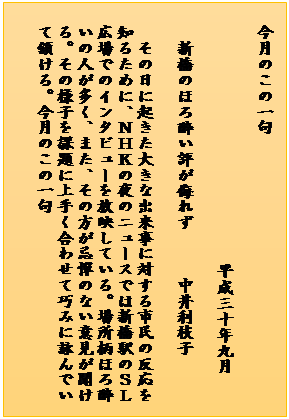 今月のこの一句
平成三十年九月
新橋のほろ酔い評が侮れず　中井利枝子
その日に起きた大きな出来事に対する市民の反応を
知るために、ＮＨＫの夜のニュースでは新橋駅のＳＬ
広場でのインタビューを放映している。場所柄ほろ酔
いの人が多く、また、その方が忌憚のない意見が聞け
る。その様子を課題に上手く合わせて巧みに詠んでい
て頷ける。今月のこの一句